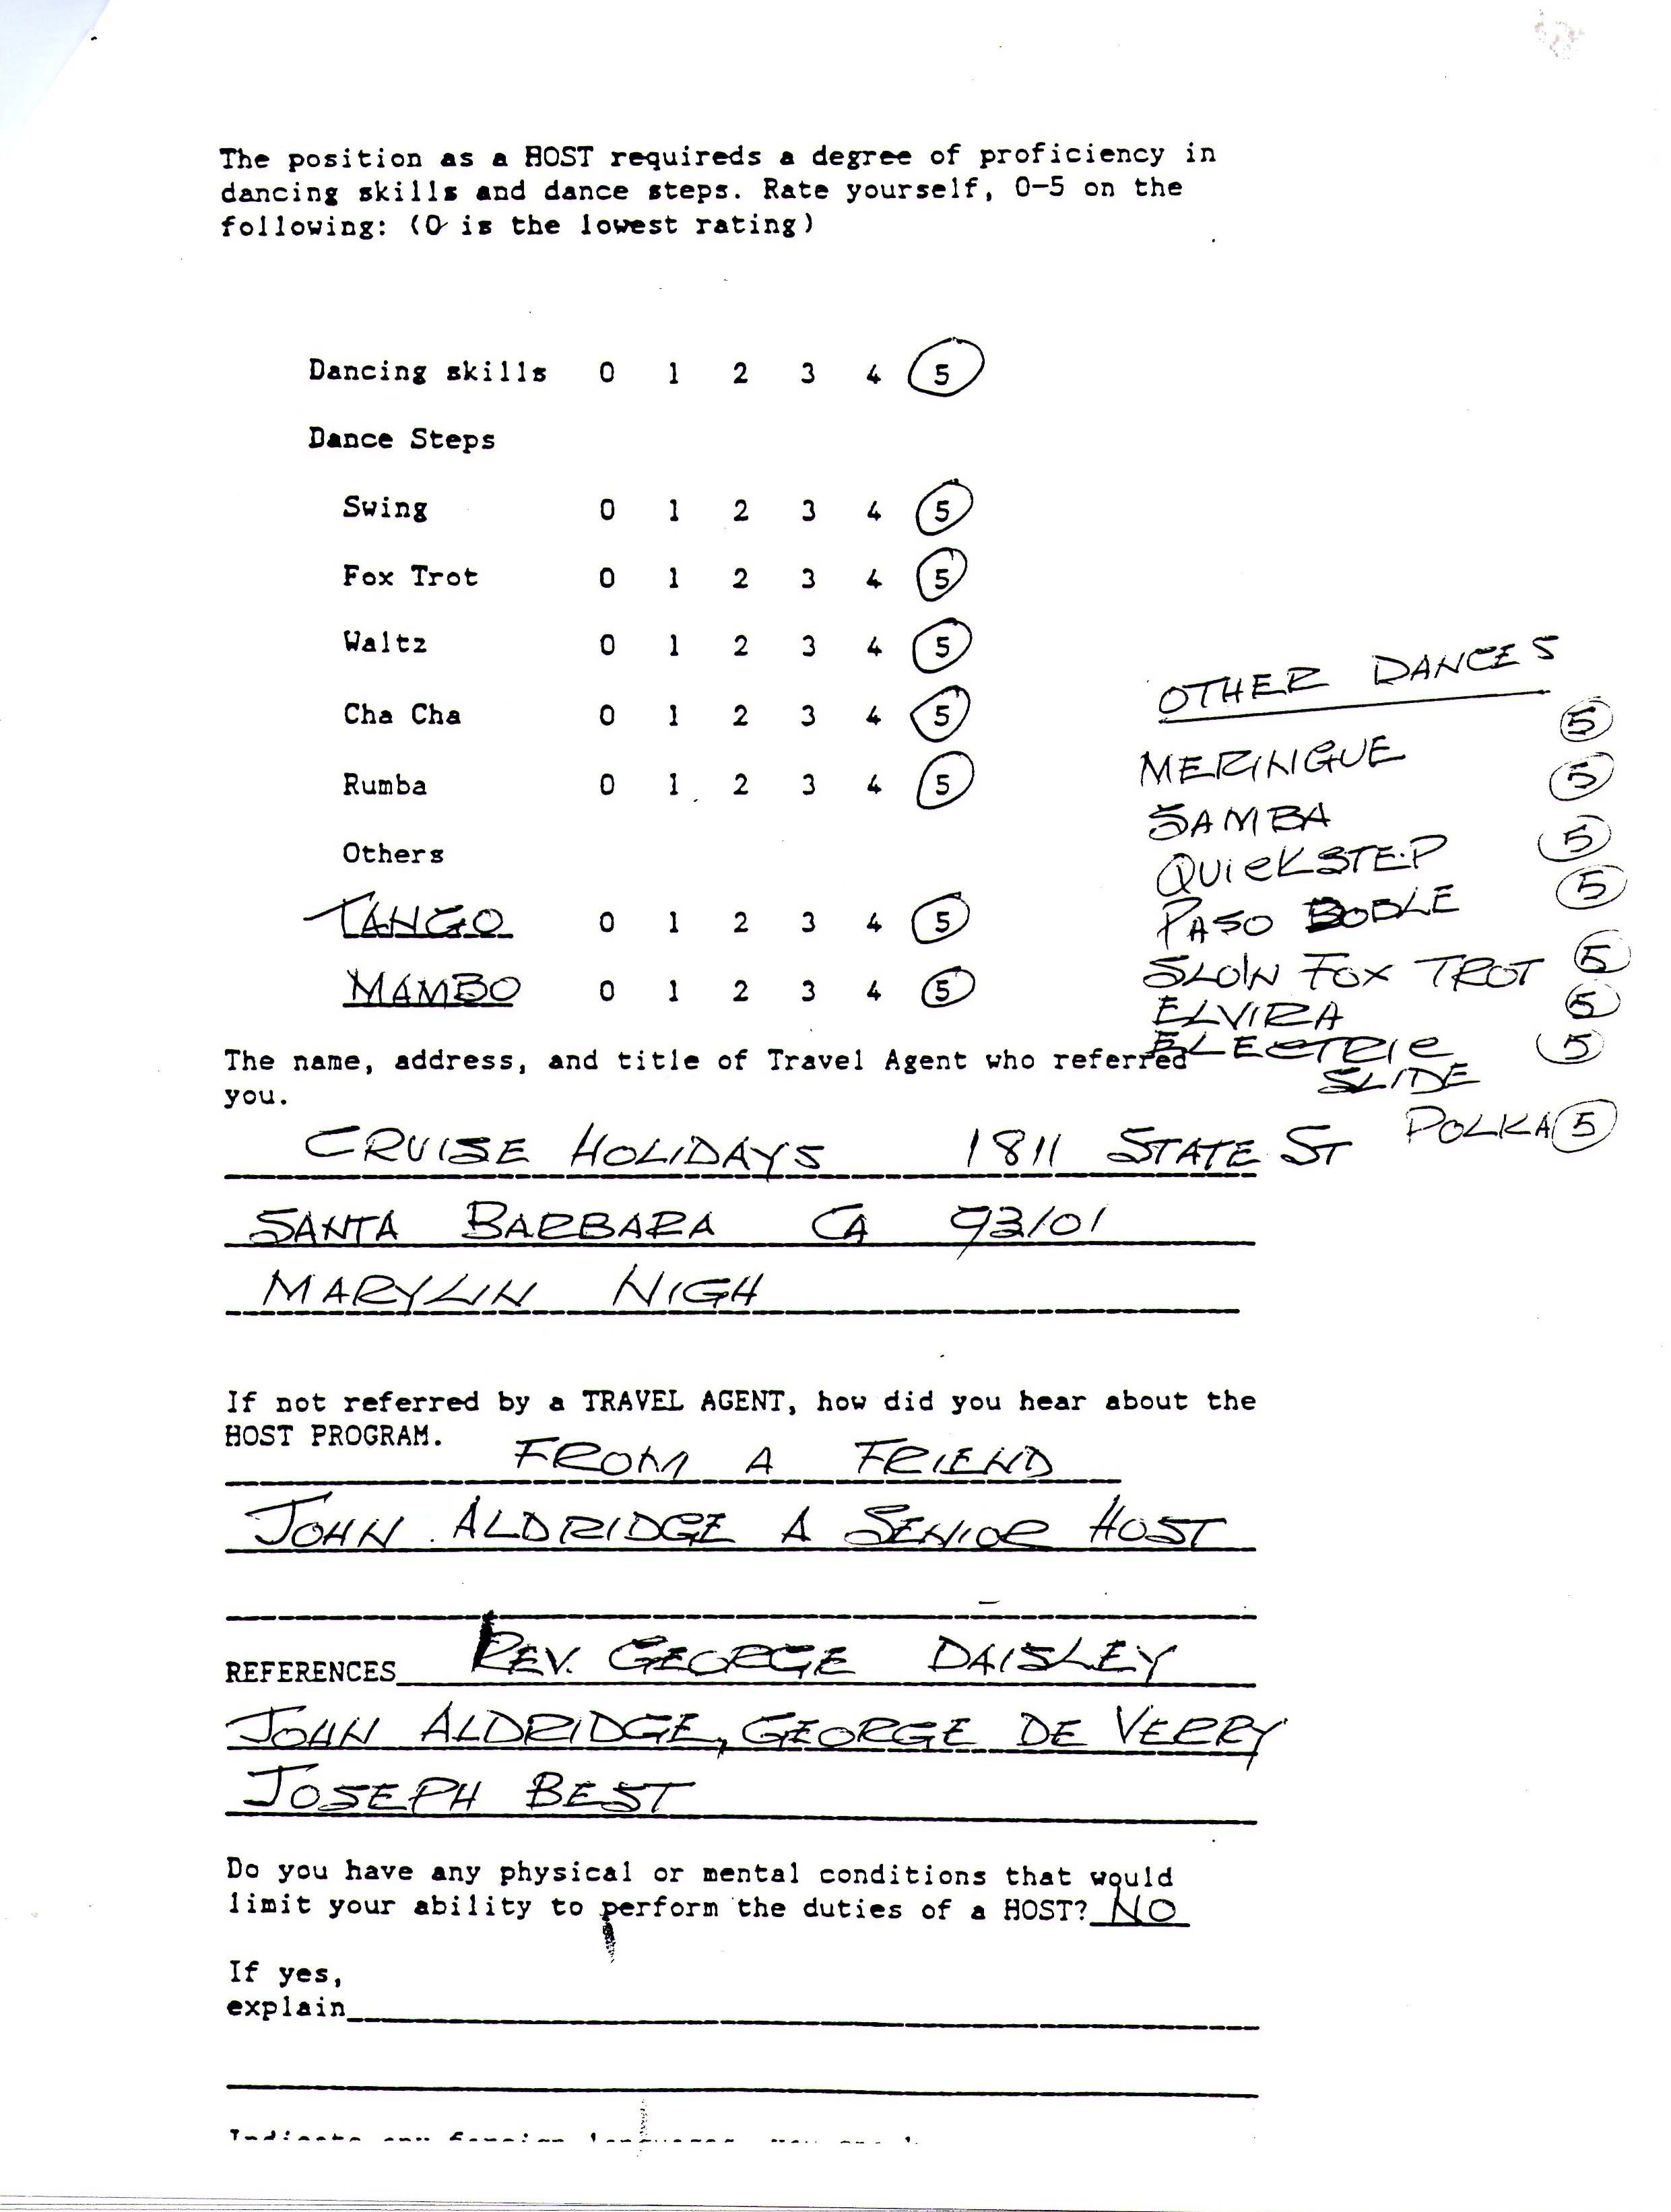 The position as a HOST requireds a degree of proficiency in
dancing skills and dance steps. Rate yourself, 0-5 on the
following: (0 is the lowest rating)
Dancing skills 0 1 2 3 4 5
Dance Steps
Swing 0 1 2 3 4 5
Fox Trot 0 1 2 3 4 5
Waltz 0 1 2 3 4 5
Cha Cha 0 1 2 3 4 5
Rumba 0 1 2 3 4 5
Others
TANGO 0 1 2 3 4 5
MAMBO 0 1 2 3 4 5
OTHER DANCES
MERINGUE 5
SAMBA 5
QUICKSTEP 5
PASO DOBLE 5
SLOW FOX TROT 5
ELVIRA 5
ELECTRIC 5
SLIDE
POLKA 5
The name, address, and title of Travel Agent who referred
you.
CRUISE HOLIDAYS 1811 STATE ST
SANTA BARBARA CA 93101
MARYLIN NIGH
If not referred by a TRAVEL AGENT, how did you hear about the
HOST PROGRAM.
FROM A FRIEND
JOHN ALDRIDGE A SENIOR HOST
REFERENCES REV. GEORGE DAISLEY
JOHN ALDRIDGE, GEORGE DE VERRY
JOSEPH BEST
Do you have any physical or mental conditions that would
limit your ability to perform the duties of a HOST? NO
If yes,
explain